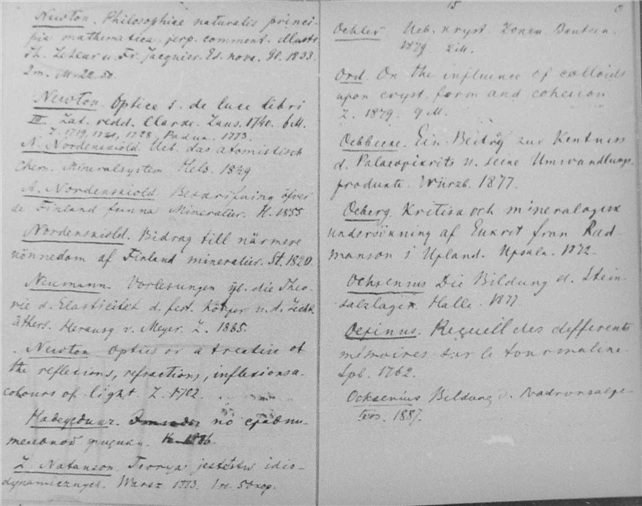 Newton. Philosophiae naturalis princi-
pia mathematica, perp. comment. illustr
Th. Leseur u. Fr. Jacquier. Ed. nova. Gl. 1833.
Newton. Optice s. de luce libri
III. Lat. redd. Clarke. Laus. 1740.
Z. 1719, 1721, 1728, Padua. 1773.
N. Nordenskiöld Ueb. das atomistisch
chem. Mineralsystem Hels. 1849
N. Nordenskiöld. Beskrifning öfver
de Finland funna Mineralier. H. 1855
Nordenskiöld. Bidrag till närmare
kännedom af Finland mineralier. St. 1820
Neumann. Vorlesungen üb. die Theo-
rie d. Elasticität d. fest. Körper u. d. Licht-
äthers. Herausg v. Meyer. Z. 1885.
Newton Optics or a treatise of
the reflexions, refractions, inflexions a.
colours of light Z. 1702
по сравни-
тельной
L. Natanson. Teorya jestestw idio-
dynamicznych. Warsz 1883. 50 кор.
15
Oehler Ueb. kryst.
1879.
Ord. On the influence of colloids
upon cryst. form and cohesion
Z. 1879. 9 M.
Oebbeke. Ein Beitrag zur Kentniss
d. Palaeopikrits u. seine Umwandlungs-
produkte. Würzb. 1877.
Oeberg. Kritisk och mineralogisk
undersökning af Eukrit från Rad-
manson i Upland. Upsala. 1872.
Ochsenius Die Bildung d. Stein-
salzlager. Halle. 1877.
Oepinus. Requeil des differents
mémoires sur le tourmaline.
Spb. 1762.
Ochsenius Bildung d. Natronsalpe-
ters. 1887.